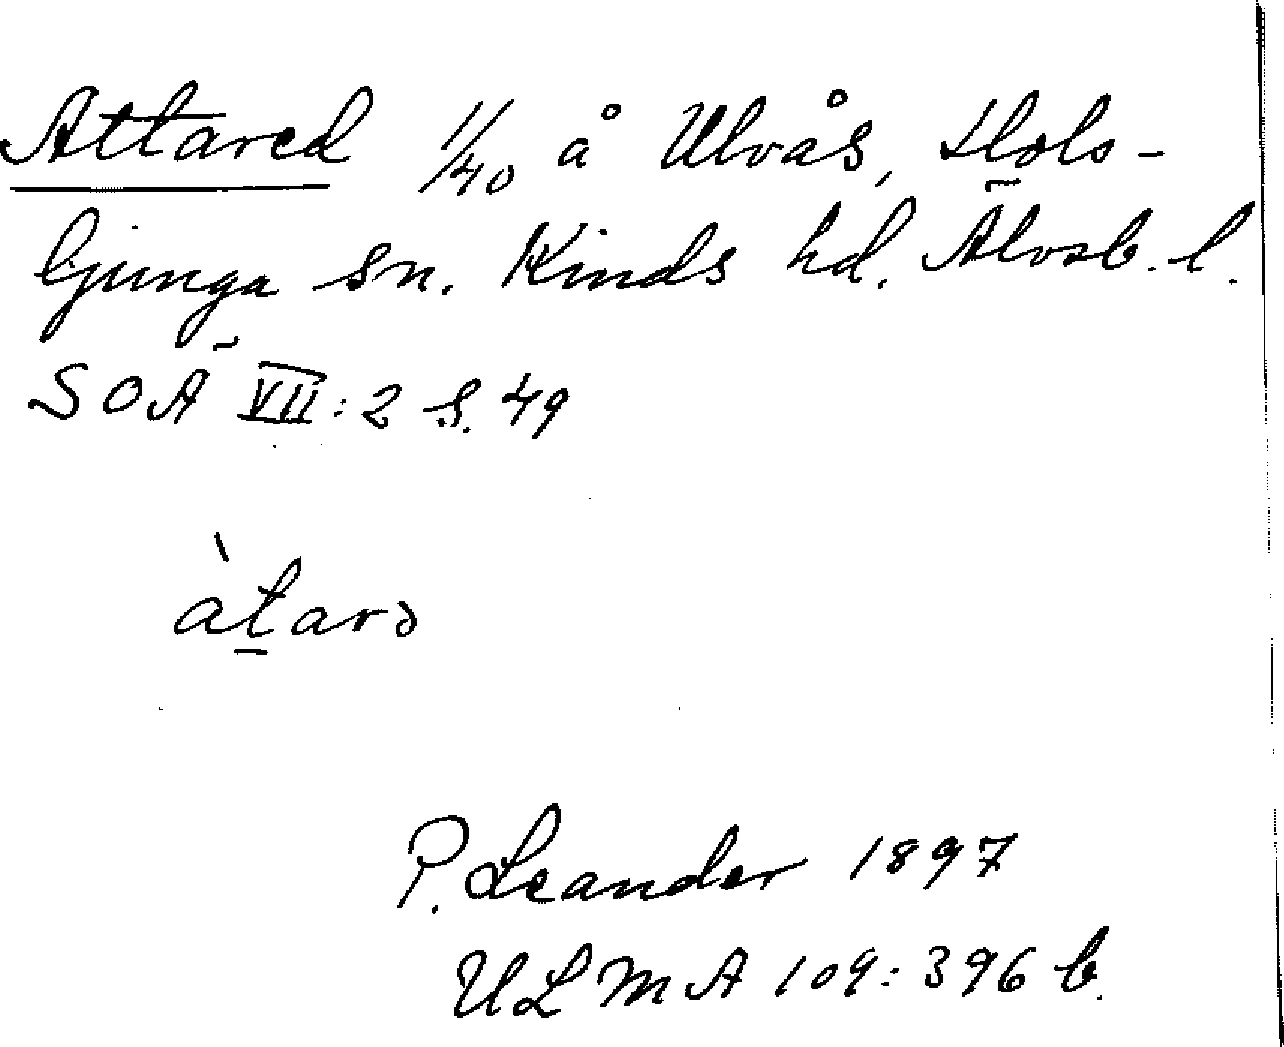 Attared 1/40 å Ulvås, Hols-
ljunga sn. Kinds hd. Älvsb. l.
SOÄ VII:2 s. 49
àtarɔ
P. Leander 1897
ULMA 109:396 b.